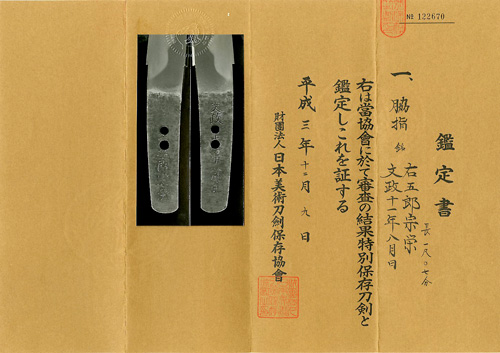 № 122670
鑑定書
一、脇指 銘 右五郎宗栄
文政十一年八月日
右は當協會に於て審査の結果特別保存刀劍と
鑑定しこれを証する
平成三年十二月九日
財團法人日本美術刀劍保存協會